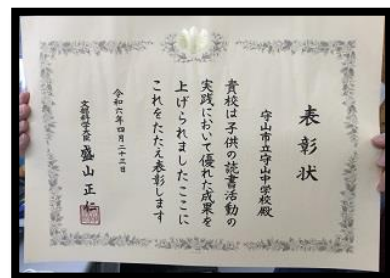 表彰状
守山市立守山中学校殿
貴校は子供の読書活動の
実践において優れた成果を
上げられましたここに
これをたたえ表彰します
令和六年四月二十三日
文部科学大臣 盛山正仁